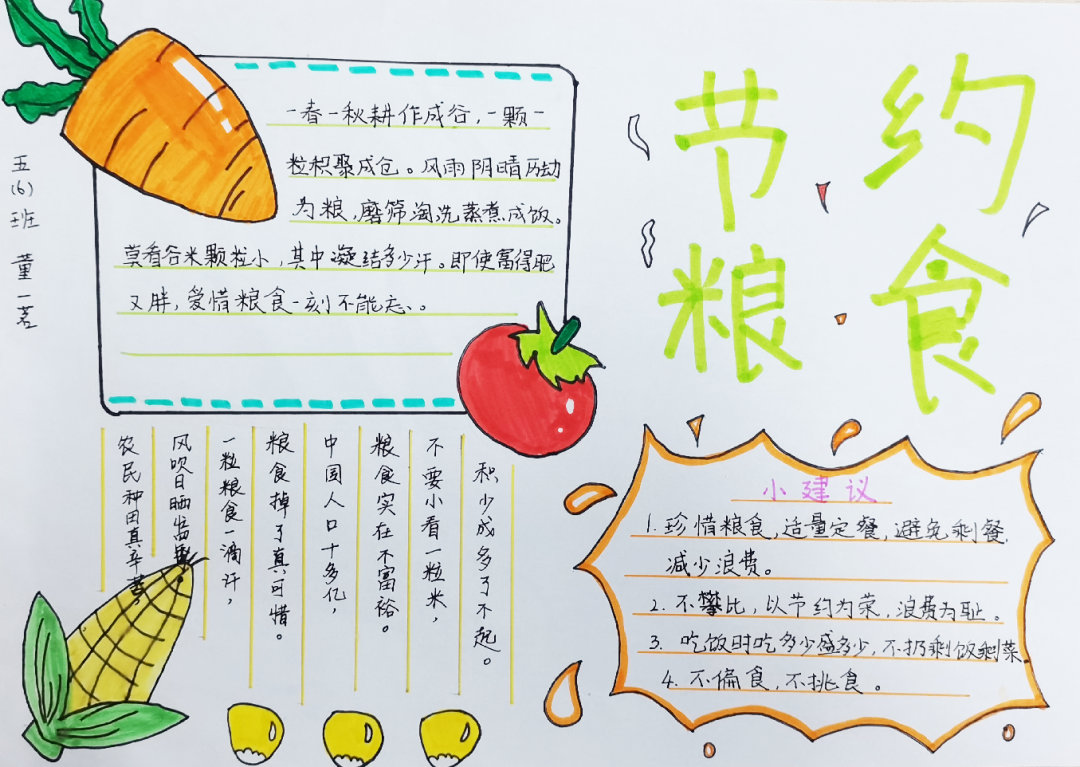 节约
粮食
五(6)班 董一茗
一春一秋耕作成谷,一颗一
粒积聚成仓。风雨阴晴历劫
为粮,磨筛淘洗蒸煮成饭。
莫看谷米颗粒小,其中凝结多少汗。即使富得肥
又胖,爱惜粮食一刻不能忘。
农民种田真辛苦,
风吹日晒
一粒粮食一滴汗,
粮食掉了真可惜。
中国人口十多亿,
粮食实在不富裕。
不要小看一粒米,
积少成多了不起。
小建议
1. 珍惜粮食,适量定餐,避免剩餐.
减少浪费。
2. 不攀比,以节约为菜,浪费为耻。
3. 吃饭时吃多少盛多少,不扔剩饭剩菜
4. 不偏食,不挑食。